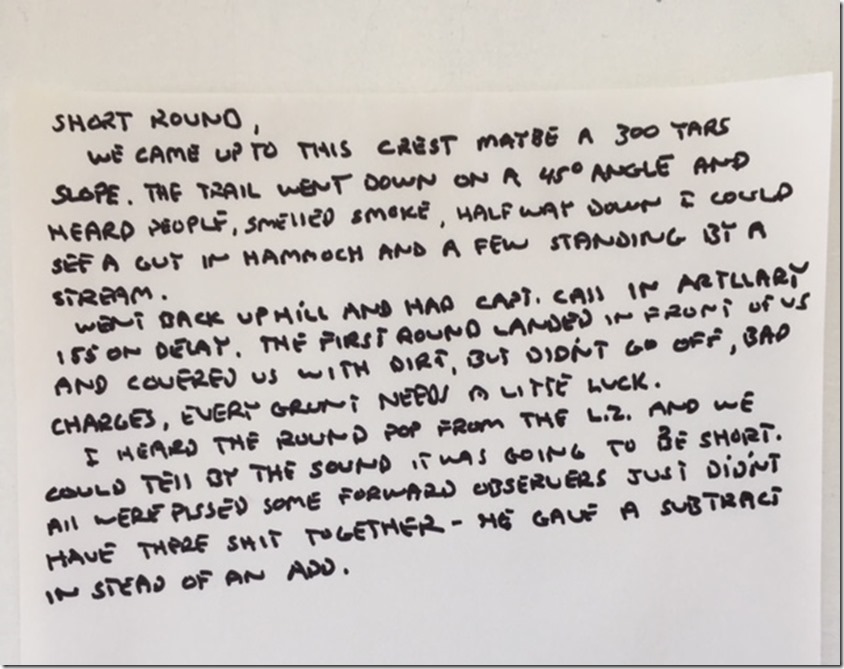 SHORT ROUND,
WE CAME UP TO THIS CREST MAYBE A 300 YARS
SLOPE. THE TRAIL WENT DOWN ON A 45° ANGLE AND
HEARD PEOPLE, SMELLED SMOKE, HALF WAY DOWN I COULD
SEE A GUY IN HAMMOCH AND A FEW STANDING BY A
STREAM.
WENT BACK UP HILL AND HAD CAPT. CALL IN ARTLLARY
155 ON DELAY. THE FIRST ROUND LANDED IN FRONT OF US
AND COVERED US WITH DIRT, BUT DIDN'T GO OFF, BAD
CHARGES, EVERY GRUNT NEEDS A LITTE LUCK.
I HEARD THE ROUND POP FROM THE L.Z. AND WE
COULD TELL BY THE SOUND IT WAS GOING TO BE SHORT.
ALL WERE PISSED SOME FORWARD OBSERVERS JUST DIDN'T
HAVE THERE SHIT TOGETHER - HE GAVE A SUBTRACT
IN STEAD OF AN ADD.